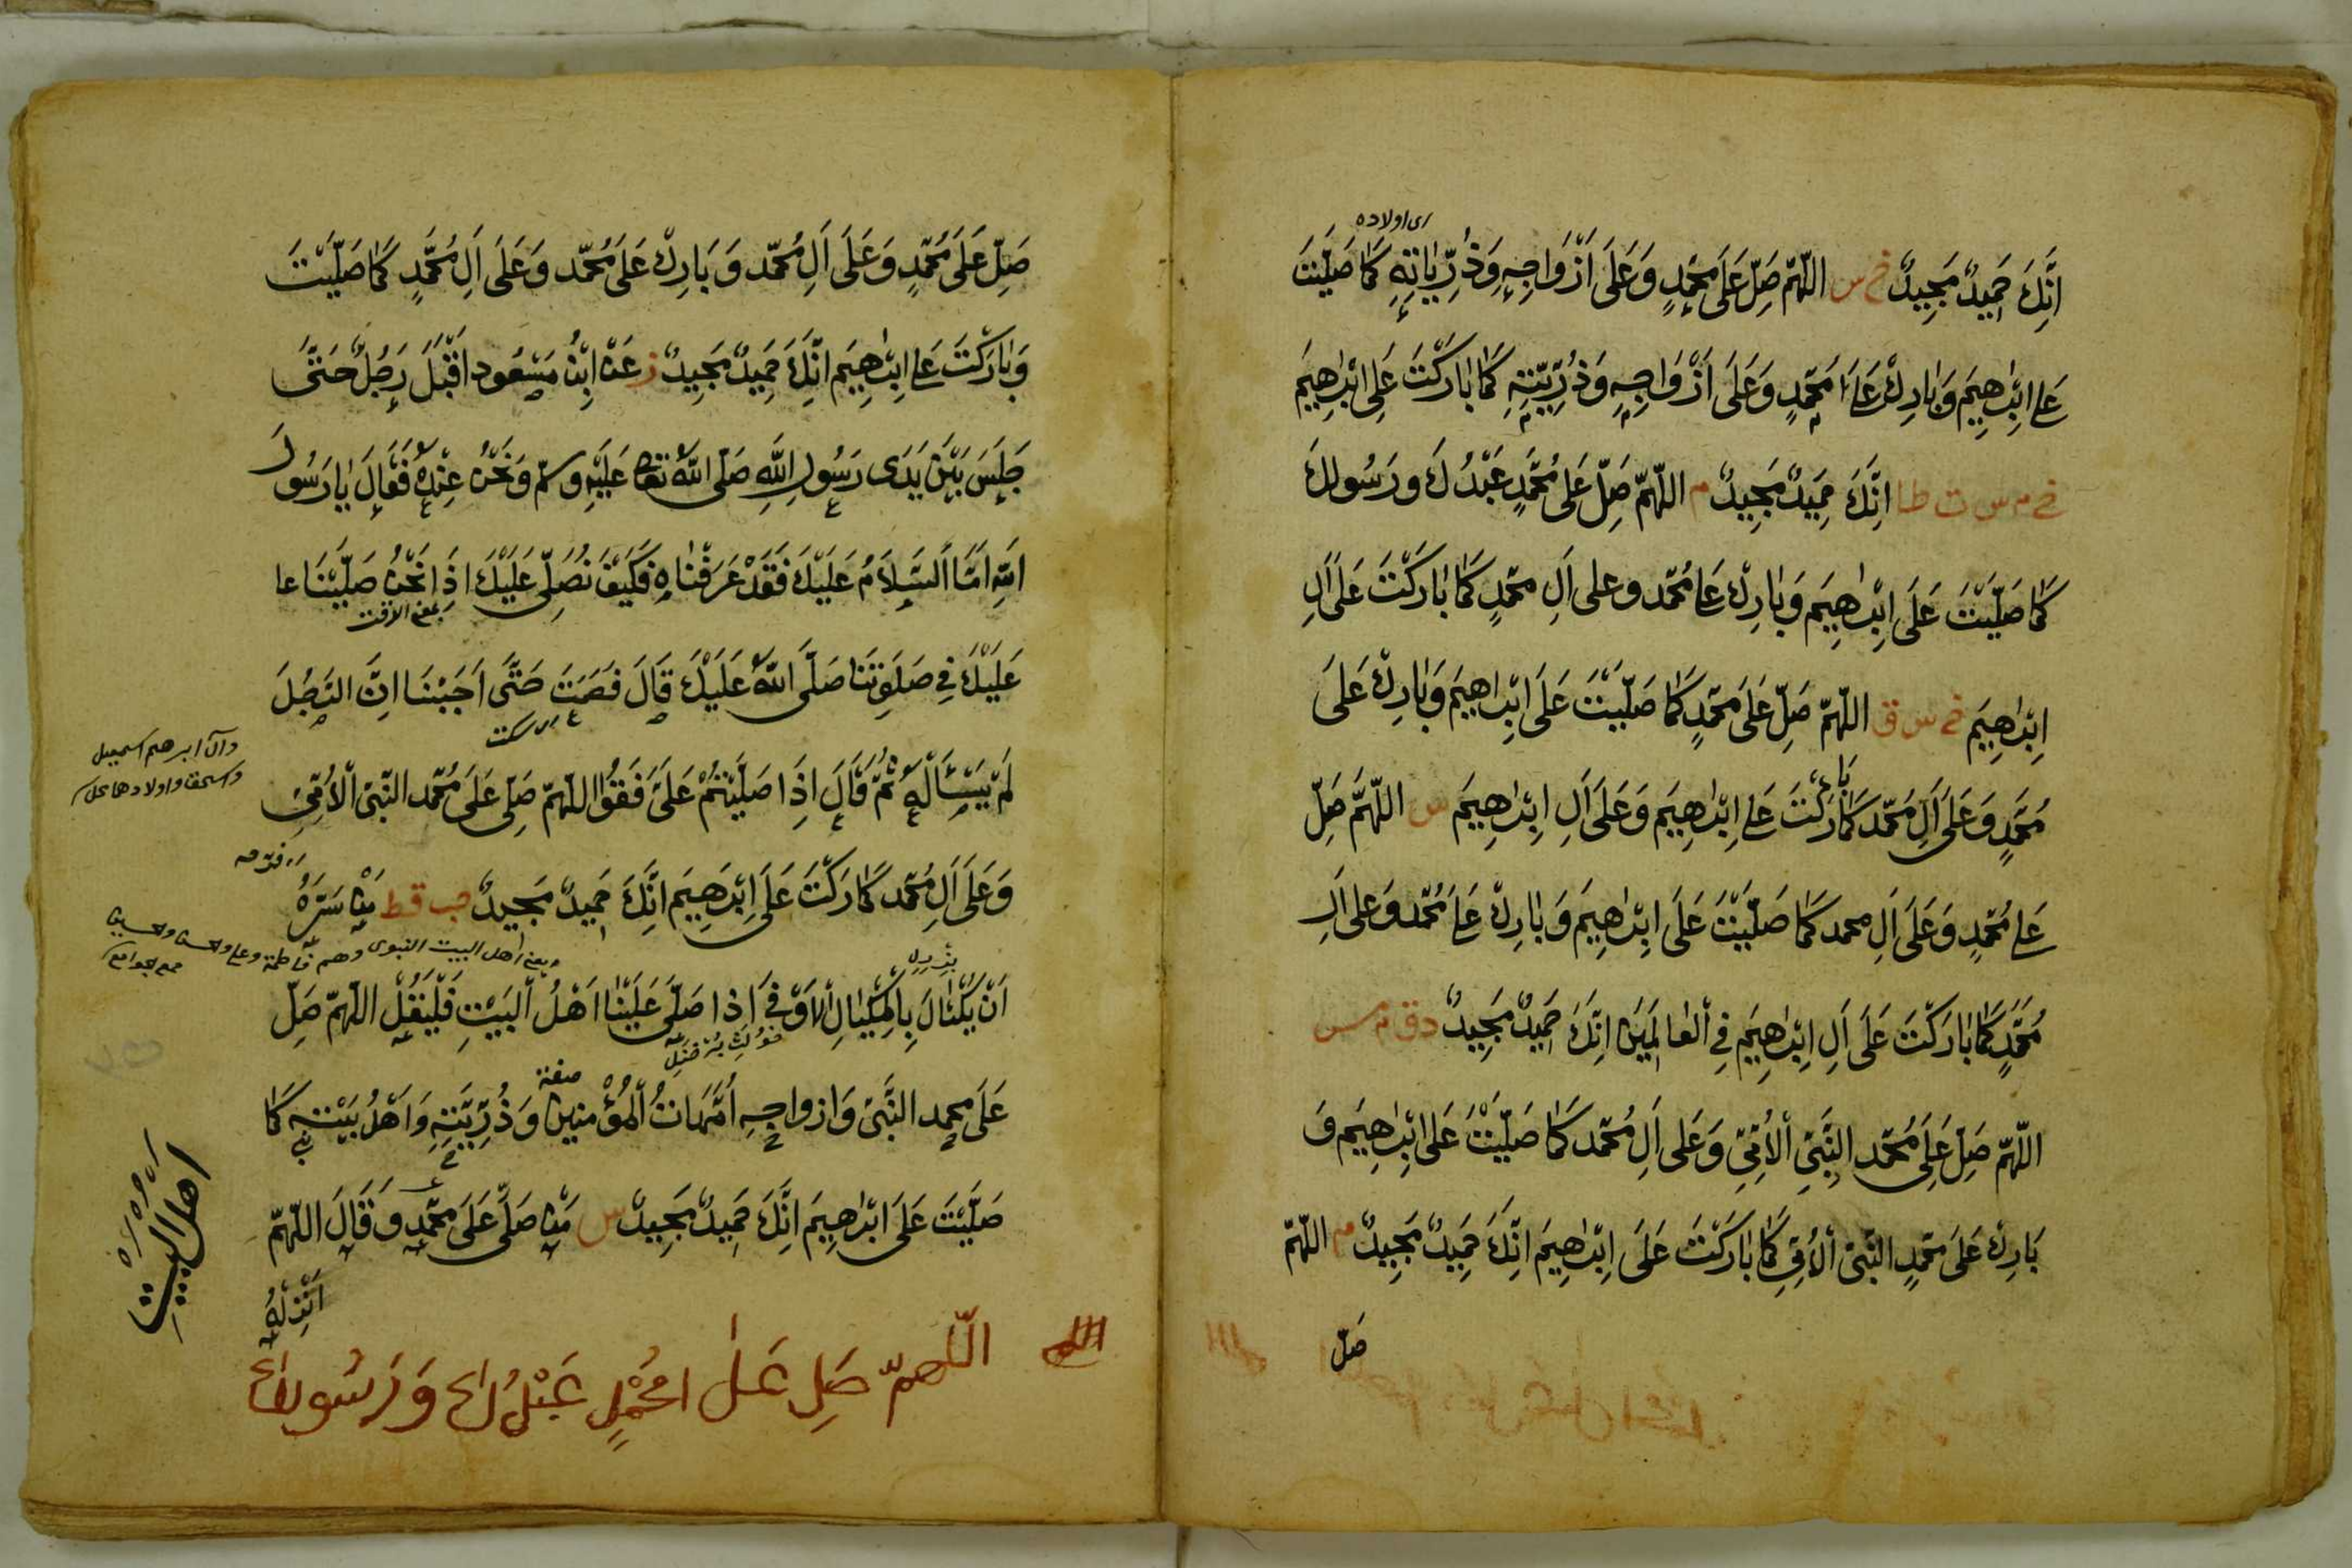 اى اولاده
اِنَّكَ حَمِيدٌ مَجِيدٌ خ س اللّٰهُمَّ صَلِّ عَلَى مُحَمَّدٍ وَعَلَى اَزْوَاجِهِ وَذُرِّيَّاتِهِ كَمَا صَلَّيْتَ
عَلى اِبْرٰهِيمَ وَبَارِكْ عَلَى مُحَمَّدٍ وَعَلَى اَزْوَاجِهِ وَذُرِّيَّتِهِ كَمَا بَارَكْتَ عَلى اِبْرٰهِيمَ
خ م س ق طا اِنَّكَ حَمِيدٌ مَجِيدٌ م اللّٰهُمَّ صَلِّ عَلى مُحَمَّدٍ عَبْدُكَ ورَسُولِكَ
كَمَا صَلَّيْتَ عَلَى اِبْرٰهِيمَ وَبَارِكْ عَلى مُحَمَّد وعلى اَلِ محمّدٍ كَمَا بَارَكْتَ عَلَى اَلِ
اِبْرٰهِيمَ خ س ق اللّٰهُمَّ صَلِّ عَلَى مُحَمَّدٍ كَمَا صَلَّيْتَ عَلَى اِبْرٰهِيمَ وَبَارِكْ عَلَى
مُحَمَّدٍ وَعَلَى اَلِ مُحَمَّد كَمَا بَارَكْتَ عَلى اِبْرٰهِيمَ وَعَلَى اَلِ اِبْرٰهِيمَ س اللّٰهُمَّ صَلِّ
عَلى مُحَمَّدٍ وَعَلَى اَلِ محمد كَمَا صَلَّيْتَ عَلَى اِبْرٰهِيمَ وَبَارِكْ عَلى مُحَمَّد وَعلى اَلِ
مُحَمَّدٍ كَمَا بَارَكْتَ عَلَى اَلِ اِبْرٰهِيمَ فِي الْعَالَمِينَ اِنَّكَ حَمِيدٌ مَجِيدٌ د ق م س
اللّٰهُمَّ صَلِّ عَلَى مُحَمَّد النَّبِيِّ الْاُمِّيِّ وَعَلى اَلِ مُحَمَّد كَمَا صَلَّيْتَ عَلى اِبْرٰهِيمَ وَ
بَارِكْ عَلَى مُحَمَّدٍ النَّبِيِّ الْاُمِّيِّ كَمَا بَارَكْتَ عَلَى اِبْرٰهِيمَ اِنَّكَ حَمِيدٌ مَجِيدٌ م اللّٰهُمَّ
صَلِّ
صَلِّ عَلَى مُحَمَّدٍ وَعَلَى اَلِ مُحَمَّد وَبَارِكْ عَلَى مُحَمَّد وَعَلَى اَلِ مُحَمَّدٍ كَمَا صَلَّيْتَ
وَبَارَكْتَ عَلى اِبْرٰهِيمَ اِنَّكَ حَمِيدٌ مَجِيدٌ ز عَنْ اِبْنُ مَسْعُود اَقْبَلَ رَجُلٌ حَتّى
جَلَسَ بَيْنَ يَدَى رَسُولِ اللّٰهِ صَلَّى اللّٰهُ تعَالى عَلَيْهِ وسلّم وَنَحْنُ عِنْدَهُ فَقَالَ يَا رَسُولَ
اللهِ اَمَّا السَّلَامُ عَلَيْكَ فَقَدْ عَرَفْنَاهُ فَكَيْفَ نُصَلِّى عَلَيْكَ اِذَا نَحْنُ صَلَّيْنَا عا
عَلَيْكَ فِي صَلَوتِنَا صَلَّى اللّٰهُ عَلَيْكَ قَالَ فَصَمَتَ حَتَّى اَحْبَبْنَا اَنَّ الرَّجُلَ
اى سكت
لَمْ يَسْئَالْهُ ثُمَّ قَالَ اِذَا صَلَّيْتُمْ عَلَىَّ فَقُوْلُوا اللّٰهُمَّ صَلِّ عَلَى مُحَمَّد النَّبِيِّ الْاُمِّيِّ
وآل ابرهيم اسمعيل
واسحق واولادهما
وَعَلَى اَلِ مُحَمَّد كَمَا بَارَكْتَ عَلَى اِبْرٰهِيمَ اِنَّكَ حَمِيدٌ مَجِيدٌ حب قط مَنْ سَرَّهُ
يعنى اهل البيت النبوى وهم فاطمة وعلى والحسن والحسين
اَنْ يَكْتَالَ بِالْمِكْيَالِ الْاَوْفى اِذَا صَلَّى عَلَيْنَا اَهْلُ الْبَيْتِ فَلْيَقُلْ اللّٰهُمَّ صَلِّ
صفة
عَلَى محمد النَّبِيِّ وَازواجِهِ اُمَّهَاتُ الْمُؤْمِنِين وَذُرِّيَّتِهِ وَاَهْلُ بَيْتِهِ كَمَا
صَلَّيْتَ عَلَى اِبْرٰهِيمَ اِنَّكَ حَمِيدٌ مَجِيدٌ س مَنْ صَلَّى عَلَى مُحَمَّدٍ وَقَالَ اللّٰهُمَّ
اَنْزِلْهُ
اهل البيت
اللّٰهمّ صَلِ عَلٰى مُحَمَّدٍ عَبْدُكَ وَرَسُولِكَ